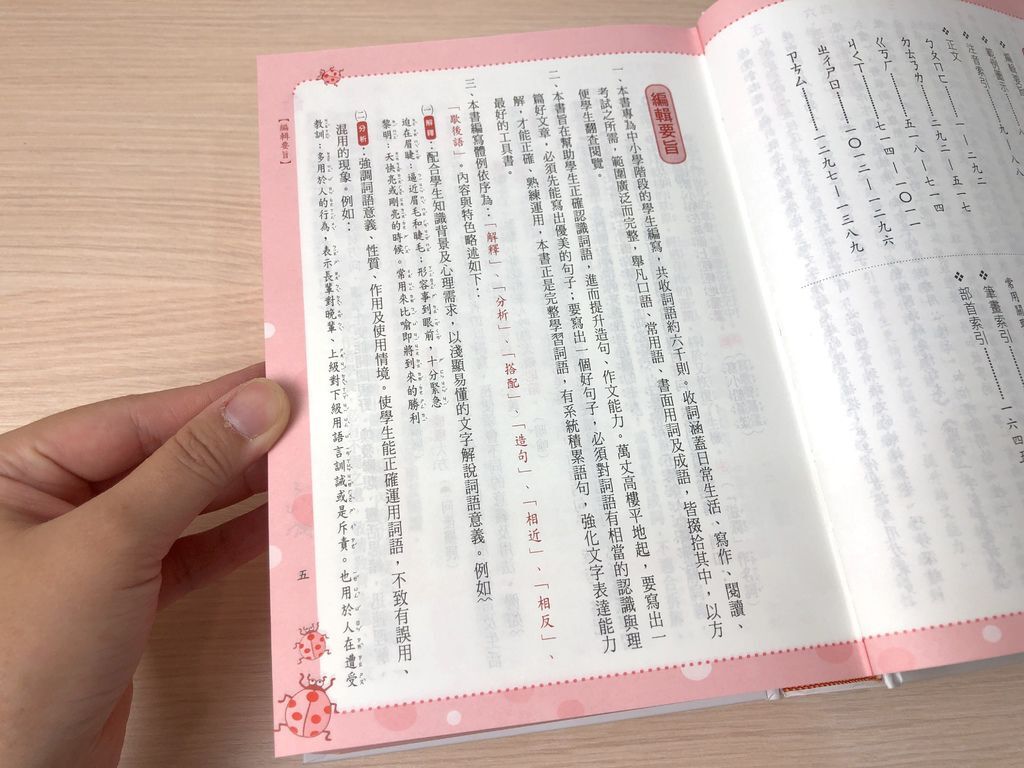 正文
ㄅㄆㄇㄈ………二九二
ㄉㄊㄋㄌ………二九二 — 五一七
ㄍㄎㄏ………五一八 — 七一四
ㄐㄑㄒ………七一四 — 一〇一一
ㄓㄔㄕㄖ………一〇一二 — 一二九六
ㄗㄘㄙ………一二九七 — 一三八九
筆畫索引
部首索引………一六四五
編輯要旨
一、本書專為中小學階段的學生編寫，共收詞語約六千則。收詞涵蓋日常生活、寫作、閱讀、
考試之所需，範圍廣泛而完整，舉凡口語、常用語、書面用詞及成語，皆掇拾其中，以方
便學生翻查閱覽。
二、本書旨在幫助學生正確認識詞語，進而提升造句、作文能力。萬丈高樓平地起，要寫出一
篇好文章，必須先能寫出優美的句子；要寫出一個好句子，必須對詞語有相當的認識與理
解，才能正確、熟練運用，本書正是完整學習詞語，有系統積累語句，強化文字表達能力
最好的工具書。
三、本書編寫體例依序為：「解釋」、「分析」、「搭配」、「造句」、「相近」、「相反」、
「歇後語」。內容與特色略述如下：
㈠解釋：配合學生知識背景及心理需求，以淺顯易懂的文字解說詞語意義。例如~
迫在眉睫：逼近眉毛和睫毛；形容事到眼前，十分緊急
黎明：天快亮或剛亮的時候。常用來比喻即將到來的勝利
㈡分析：強調詞語意義、性質、作用及使用情境。使學生能正確運用詞語，不致有誤用、
混用的現象。例如：
教訓：多用於人的行為，表示長輩對晚輩、上級對下級用語言訓誡或是斥責。也用於人在遭受
【編輯要旨】
五